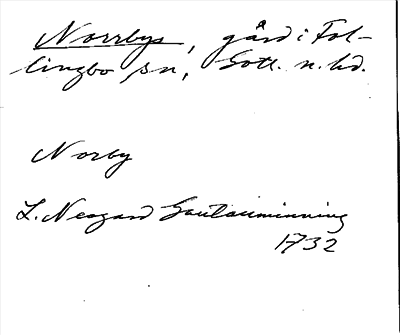 Norrbys, gård i Fol-
lingbo sn, Gotl. n. hd.
Norby
L. Neogard Gautauminning
1732